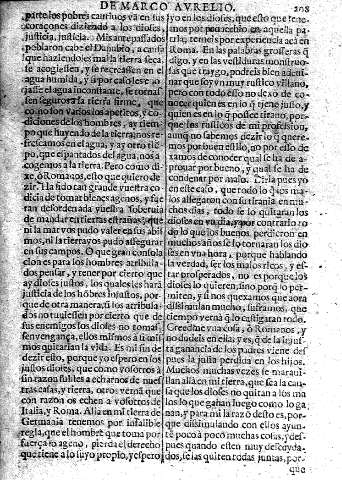 DE MARCO AVRELIO. 208
parte los pobres cautiuos va en sus
coraçones diziendo a los dioses,
justicia, justicia. Mis antepassados
poblaron cabe el Danubio, a causa
que haziendoles mal la tierra seca,
se acogiessen, y se recreassen en el
agua humida, y si por caso les enojasse
el agua inconstante, se tornassen
seguros a la tierra firme, que
como son varios los apetitos, y condiciones
de los hombres, ay tiempo
que huyendo de la tierra nos refrescamos
en el agua, y ay otro tiempo,
que espantados del agua, nos acogemos
a la tierra. Pero como dire,
ô Romanos, esto que quiero dezir?
Ha sido tan grande vuestra codicia
de tomar bienes agenos, y fue
tan desordenada vuestra soberuia
de mandar en tierras estrañas, que
ni la mar vos pudo valer en sus abismos,
ni la tierra vos pudo assegurar
en sus campos. O que gran consolacion
es para los hombres atribulados
pensar, y tener por cierto que
ay dioses justos, los quales les harã
justicia de los hõbres injustos, porque
de otra manera, si los atribulados
no tuuiessen por cierto que de
sus enemigos los dioses no tomassen
vengança, ellos mismos a si mismos
quitarian la vida. Es mi fin de
dezir esto, porque yo espero en los
justos dioses, que como vosotros a
sin razon fuistes a echarnos de nuestras
casas, y tierra, otros vernã que
con razon os echen a vosotros de
Italia, y Roma. Alla en mi tierra de
Germania tenemos por infalible
regla, que el hombre que toma por
fuerça lo ageno, pierda el derecho
que tiene a lo suyo proprio, y espero
yo en los dioses, que esto que tenemos
por prouerbio en aquella patria,
terneis por experiencia acâ en
Roma. En las palabras grosseras q̃
digo, y en las vestiduras monstruosas
que traygo, podreis bien adeuinar
que soy vn muy rustico villano,
pero con todo esso no dexo de conocer
quien es en lo q̃ tiene justo, y
quien es en lo q̃ possee tirano, porque
los rusticos de mi profession,
aunq̃ no sabemos dezir lo q̃ queremos
por buen estilo, no por esso dexamos
de conocer qual se ha de aprouar
por bueno, y qual se ha de
condenar por malo. Diria pues yo
en este caso, que todo lo q̃ los malos
allegaron con su tirania en muchos
dias, todo se lo quitaran los
dioses en vn dia, y por contrario todo
lo que los buenos perdieron en
muchos años se lo tornaran los dioses
en vna hora, porque hablando
la verdad, ser los malos ricos, y estar
prosperados, no es porque los
dioses lo quieren, sino porq̃ lo permiten,
y si nos quexamos que aora
dissimulan mucho, suframos, que
tiempo vernâ q̃ lo castiguen todo.
Creedme vna cosa, ô Romanos, y
no dudeis en ella, y es, q̃ de la injusta
ganancia de los padres viene despues
la justa perdida en los hijos.
Muchos muchas vezes se marauillan
allâ en mi tierra, que sea la causa
que los dioses no quitan a los malos
lo que ganan luego como lo ganan,
y para mi la razõ desto es, porque
dissimulando con ellos ayuntê
poco a poco muchas cosas, y despues
quando estên muy descuydados,
se las quiten todas juntas, porque